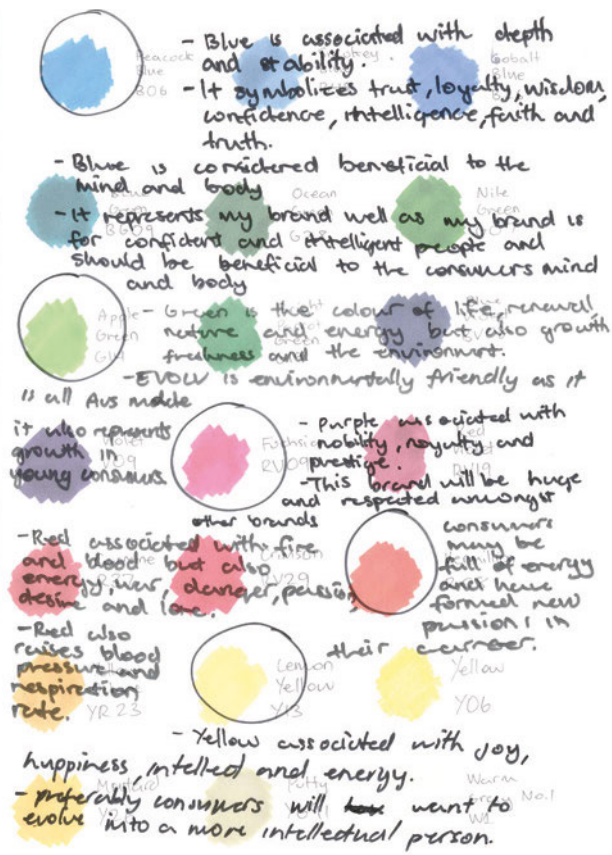 - Blue is associated with depth
and stability.
- It symbolizes trust, loyalty, wisdom,
confidence, intelligence, faith and
truth.
Peacock
Blue
B06
Cobalt
Blue
- Blue is considered beneficial to the
mind and body
- It represents my brand well as my brand is
for confident and intelligent people and
should be beneficial to the consumers mind
and body
BG09
Ocean
Nile
Green
- Green is the colour of life, renewal,
nature and energy but also growth
freshness and the environment.
Apple
Green
G14
- EVOLV is environmentally friendly as it
is all Aus made
it also represents
growth in
young consumers.
Violet
V09
Fuchsia
RV09
- Purple associated with
nobility, royalty and
prestige.
- This brand will be huge
and respected amongst
other brands
Red
RV19
- Red associated with fire
and blood but also
energy, war, danger, passion,
desire and love.
R37
Crimson
RV29
consumers
may be
full of energy
and have
formed new
passions in
their career.
- Red also
raises blood
pressure and
respiration
rate.
YR23
Lemon
Yellow
Y13
Yellow
Y06
- Yellow associated with joy,
happiness, intellect and energy.
- preferably consumers will want to
evolve into a more intellectual person.
Mustard
Putty
Warm
Grey No.1
W1